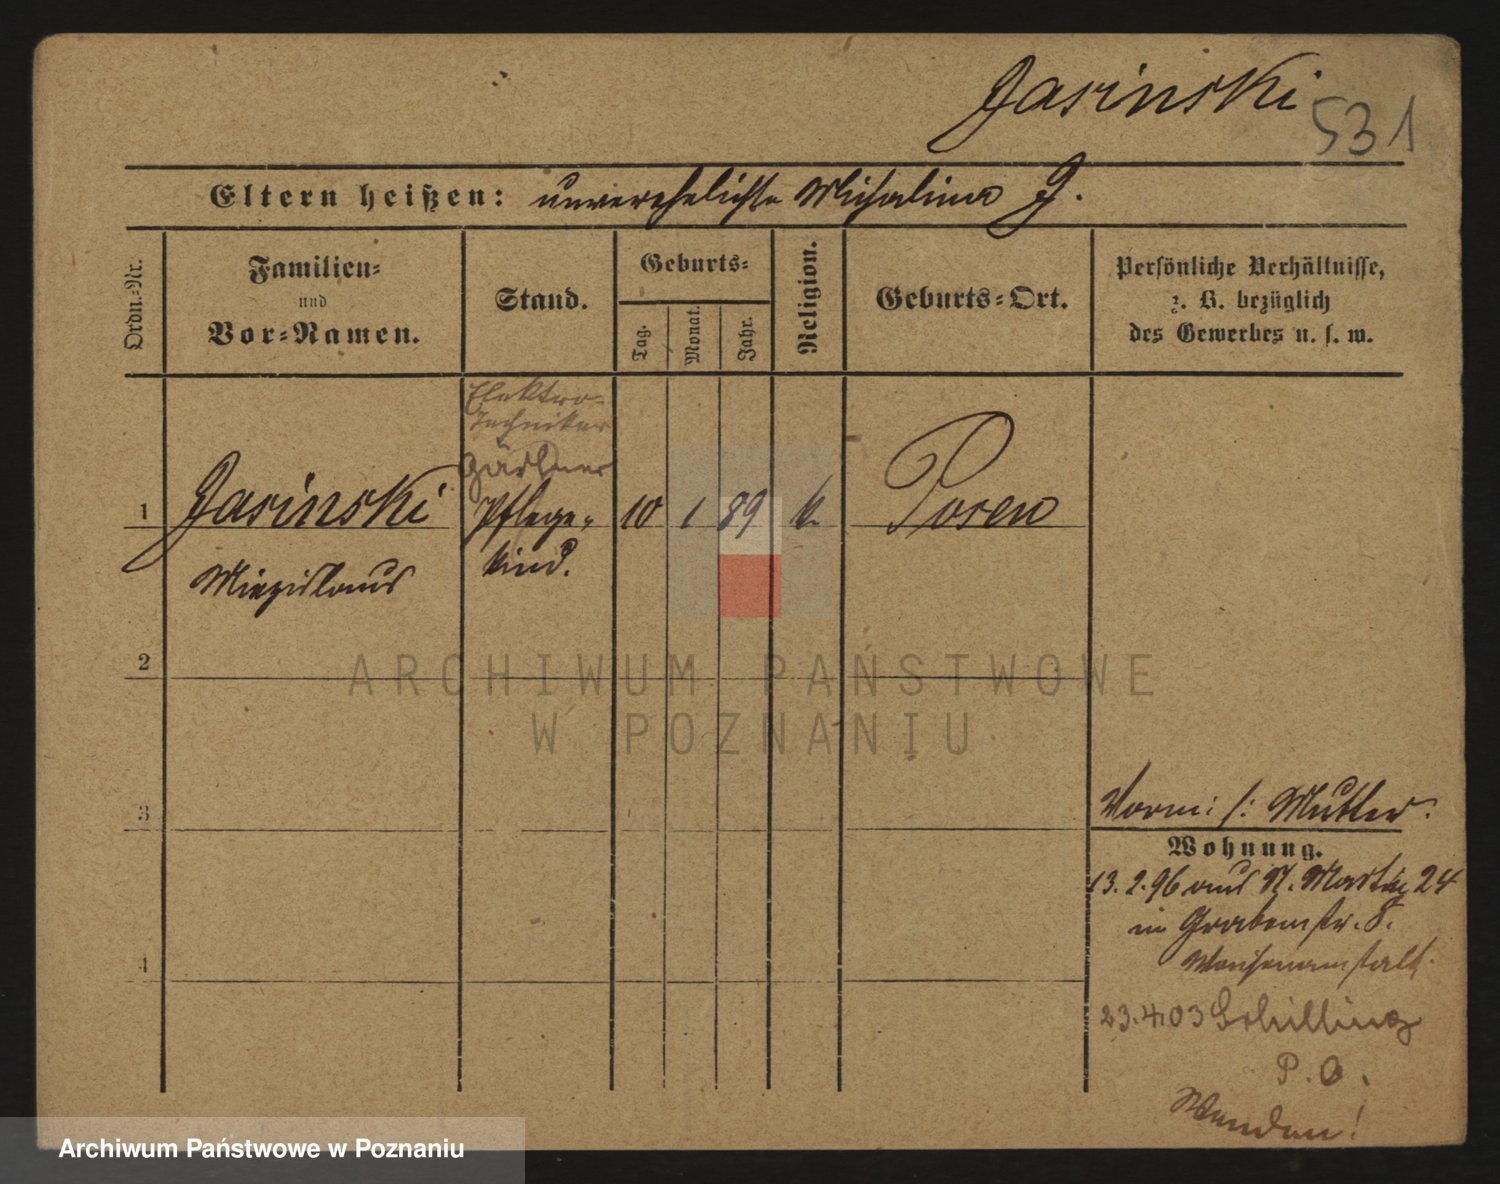 Jasinski 531
Eltern heißen: unverehelichte Michalina J.
Ordn.-Nr.
Familien-
und
Vor-Namen.
Stand.
Geburts-
Tag.
Monat.
Jahr.
Religion.
Geburts-Ort.
Persönliche Verhältnisse,
z. B. bezüglich
des Gewerbes u. s. w.
Elektro-
Techniker
Gärtner
1 Jasinski Pflege- 10 1 89 k. Posen
Miezislaus kind.
2
3
4
Vorm: s: Mutter.
Wohnung.
13.2.96 aus St. Martin 24
in Grabenstr. 8.
Waisenanstalt.
23.4.03 Schilling
P. O.
Wenden!
ARCHIWUM PAŃSTWOWE
W POZNANIU
Archiwum Państwowe w Poznaniu